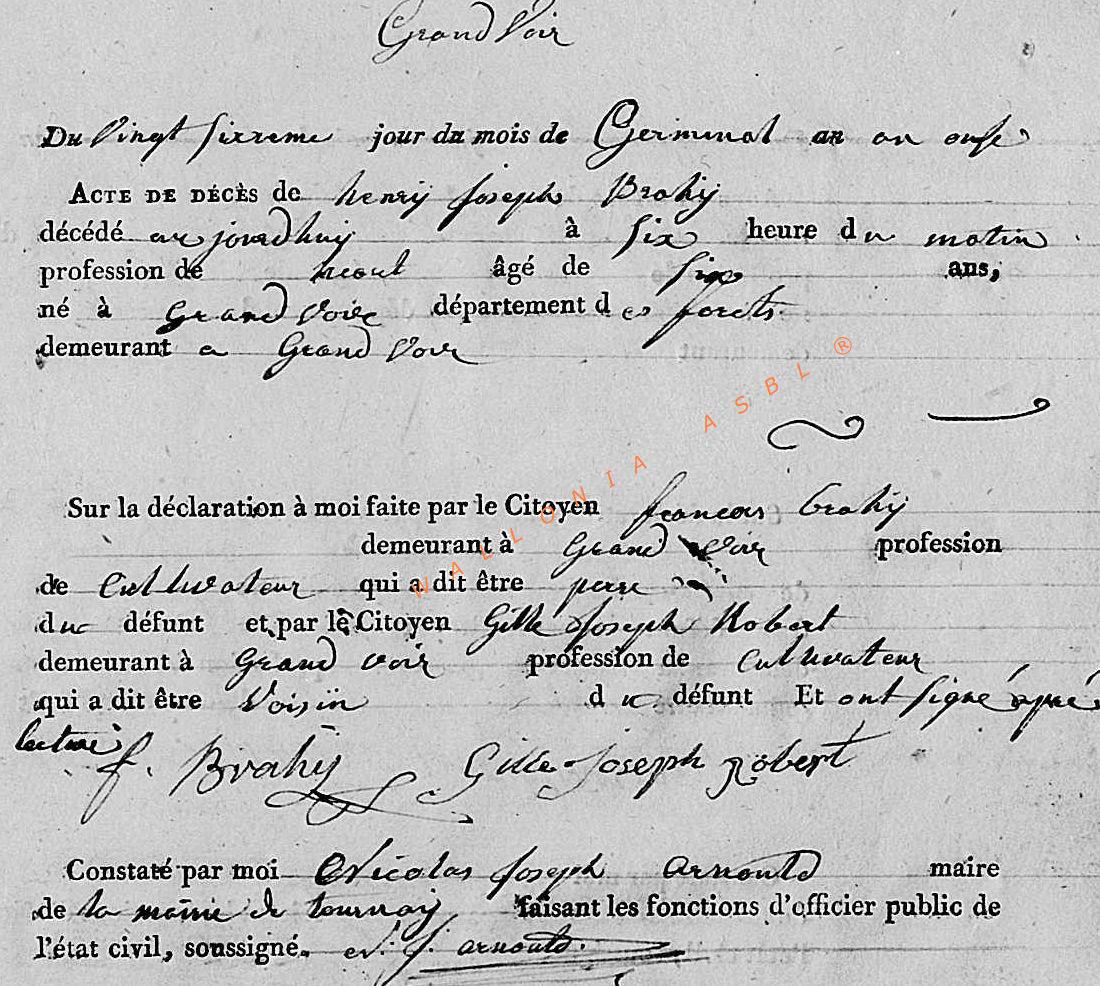 Grand Voir
Du Vingt sixieme jour du mois de Germinal an an onse
ACTE DE DÉCÈS de henry joseph Brahy
décédé aujourdhuy à six heure du matin
profession de neant âgé de six ans,
né à Grand Voir département des forets
demeurant a Grand Voir
WALLONIA ASBL ®
Sur la déclaration à moi faite par le Citoyen francois brahy
demeurant à Grand voir profession
de Cultivateur qui a dit être perre
du défunt et par le Citoyen Gille Joseph Robert
demeurant à Grand voir profession de Cultivateur
qui a dit être Voisin du défunt Et ont signé après
lecture
f. Brahy Gille Joseph Robert
Constaté par moi Nicolas joseph arnould maire
de la mairie de tournay faisant les fonctions d'officier public de
l'état civil, soussigné. N. j. arnould.